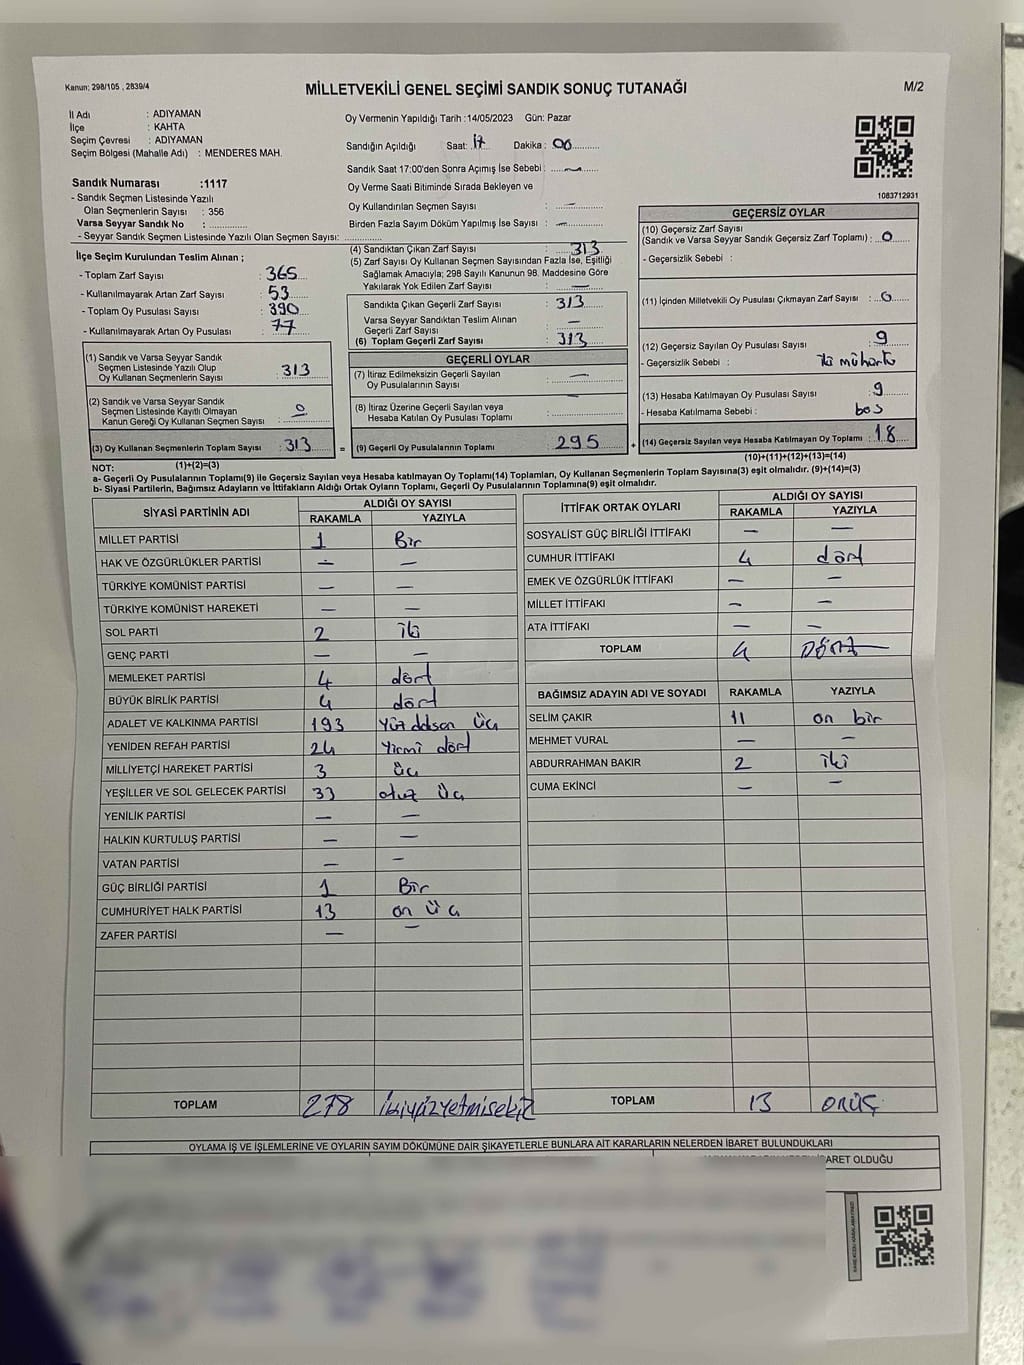 Kanun: 298/105 , 2839/4
MİLLETVEKİLİ GENEL SEÇİMİ SANDIK SONUÇ TUTANAĞI
M/2
İl Adı : ADIYAMAN
İlçe : KAHTA
Seçim Çevresi : ADIYAMAN
Seçim Bölgesi (Mahalle Adı) : MENDERES MAH.
Sandık Numarası :1117
- Sandık Seçmen Listesinde Yazılı
Olan Seçmenlerin Sayısı : 356
Varsa Seyyar Sandık No :
- Seyyar Sandık Seçmen Listesinde Yazılı Olan Seçmen Sayısı:
Oy Vermenin Yapıldığı Tarih :14/05/2023 Gün: Pazar
Sandığın Açıldığı Saat: 17 Dakika : 00
Sandık Saat 17:00'den Sonra Açımış İse Sebebi : —
Oy Verme Saati Bitiminde Sırada Bekleyen ve
Oy Kullandırılan Seçmen Sayısı : —
Birden Fazla Sayım Döküm Yapılmış İse Sayısı : —
1083712931
İlçe Seçim Kurulundan Teslim Alınan ;
- Toplam Zarf Sayısı : 365
- Kullanılmayarak Artan Zarf Sayısı : 53
- Toplam Oy Pusulası Sayısı : 390
- Kullanılmayarak Artan Oy Pusulası : 77
(1) Sandık ve Varsa Seyyar Sandık
Seçmen Listesinde Yazılı Olup
Oy Kullanan Seçmenlerin Sayısı : 313
(2) Sandık ve Varsa Seyyar Sandık
Seçmen Listesinde Kayıtlı Olmayan
Kanun Gereği Oy Kullanan Seçmen Sayısı : 0
(3) Oy Kullanan Seçmenlerin Toplam Sayısı : 313 =
(1)+(2)=(3)
(4) Sandıktan Çıkan Zarf Sayısı : 313
(5) Zarf Sayısı Oy Kullanan Seçmen Sayısından Fazla İse, Eşitliği
Sağlamak Amacıyla; 298 Sayılı Kanunun 98. Maddesine Göre
Yakılarak Yok Edilen Zarf Sayısı : —
Sandıkta Çıkan Geçerli Zarf Sayısı : 313
Varsa Seyyar Sandıktan Teslim Alınan
Geçerli Zarf Sayısı : —
(6) Toplam Geçerli Zarf Sayısı : 313
GEÇERLİ OYLAR
(7) İtiraz Edilmeksizin Geçerli Sayılan
Oy Pusulalarının Sayısı : —
(8) İtiraz Üzerine Geçerli Sayılan veya
Hesaba Katılan Oy Pusulası Toplamı :
(9) Geçerli Oy Pusulalarının Toplamı : 295 +
GEÇERSİZ OYLAR
(10) Geçersiz Zarf Sayısı
(Sandık ve Varsa Seyyar Sandık Geçersiz Zarf Toplamı) : 0
- Geçersizlik Sebebi :
(11) İçinden Milletvekili Oy Pusulası Çıkmayan Zarf Sayısı : 0
(12) Geçersiz Sayılan Oy Pusulası Sayısı : 9
- Geçersizlik Sebebi :
(13) Hesaba Katılmayan Oy Pusulası Sayısı : 9
- Hesaba Katılmama Sebebi : bos
(14) Geçersiz Sayılan veya Hesaba Katılmayan Oy Toplamı : 18
(10)+(11)+(12)+(13)=(14)
NOT:
a- Geçerli Oy Pusulalarının Toplamı(9) ile Geçersiz Sayılan veya Hesaba Katılmayan Oy Toplamı(14) Toplamları, Oy Kullanan Seçmenlerin Toplam Sayısına(3) eşit olmalıdır. (9)+(14)=(3)
b- Siyasi Partilerin, Bağımsız Adayların ve İttifakların Aldığı Ortak Oyların Toplamı, Geçerli Oy Pusulalarının Toplamına(9) eşit olmalıdır.
SİYASİ PARTİNİN ADI ALDIĞI OY SAYISI
RAKAMLA YAZIYLA
MİLLET PARTİSİ 1 Bir
HAK VE ÖZGÜRLÜKLER PARTİSİ — —
TÜRKİYE KOMÜNİST PARTİSİ — —
TÜRKİYE KOMÜNİST HAREKETİ — —
SOL PARTİ 2 iki
GENÇ PARTİ — —
MEMLEKET PARTİSİ 4 dört
BÜYÜK BİRLİK PARTİSİ 4 dört
ADALET VE KALKINMA PARTİSİ 193 Yüz doksan üç
YENİDEN REFAH PARTİSİ 24 Yirmi dört
MİLLİYETÇİ HAREKET PARTİSİ 3 üç
YEŞİLLER VE SOL GELECEK PARTİSİ 33 otuz üç
YENİLİK PARTİSİ — —
HALKIN KURTULUŞ PARTİSİ — —
VATAN PARTİSİ — —
GÜÇ BİRLİĞİ PARTİSİ 1 Bir
CUMHURİYET HALK PARTİSİ 13 on üç
ZAFER PARTİSİ — —
TOPLAM 278 İkiyüzyetmisekiz
İTTİFAK ORTAK OYLARI ALDIĞI OY SAYISI
RAKAMLA YAZIYLA
SOSYALİST GÜÇ BİRLİĞİ İTTİFAKI — —
CUMHUR İTTİFAKI 4 dört
EMEK VE ÖZGÜRLÜK İTTİFAKI — —
MİLLET İTTİFAKI — —
ATA İTTİFAKI — —
TOPLAM 4 DÖRT
BAĞIMSIZ ADAYIN ADI VE SOYADI RAKAMLA YAZIYLA
SELİM ÇAKIR 11 on bir
MEHMET VURAL — —
ABDURRAHMAN BAKIR 2 iki
CUMA EKİNCİ — —
TOPLAM 13 ONÜÇ
OYLAMA İŞ VE İŞLEMLERİNE VE OYLARIN SAYIM DÖKÜMÜNE DAİR ŞİKAYETLERLE BUNLARA AİT KARARLARIN NELERDEN İBARET BULUNDUKLARI
OLDUĞU